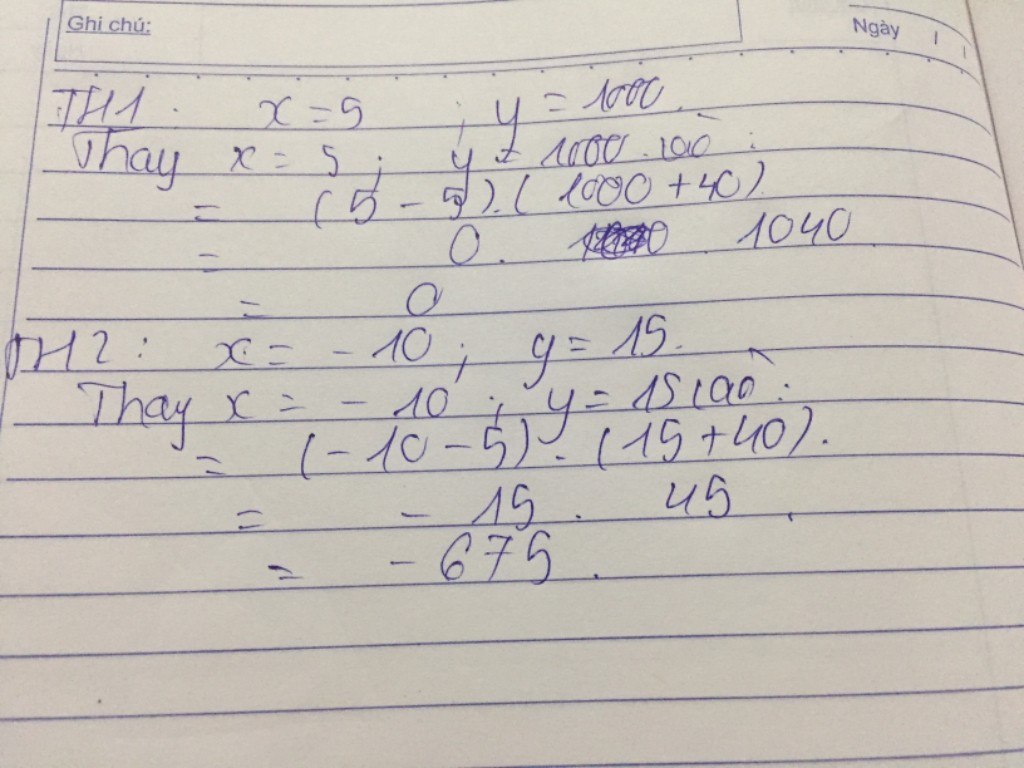 Ghi chú:
Ngày / /
TH1: x = 5 ; y = 1000.
Thay x = 5 ; y = 1000 vào:
= (5 - 5).(1000 + 40)
= 0 . 1040
= 0
TH2: x = - 10 ; y = 15.
Thay x = - 10 ; y = 15 vào:
= (- 10 - 5) . (15 + 40).
= - 15 . 45
= - 675.